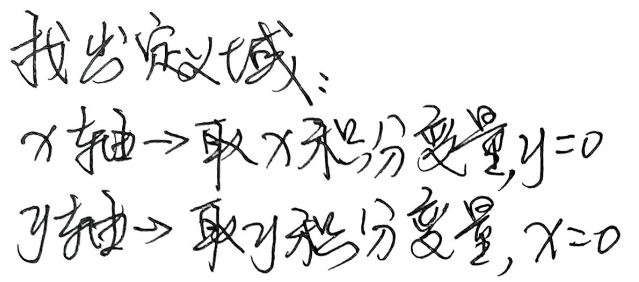 找出定义域:
x轴→取x积分变量,y=0
y轴→取y积分变量,x=0